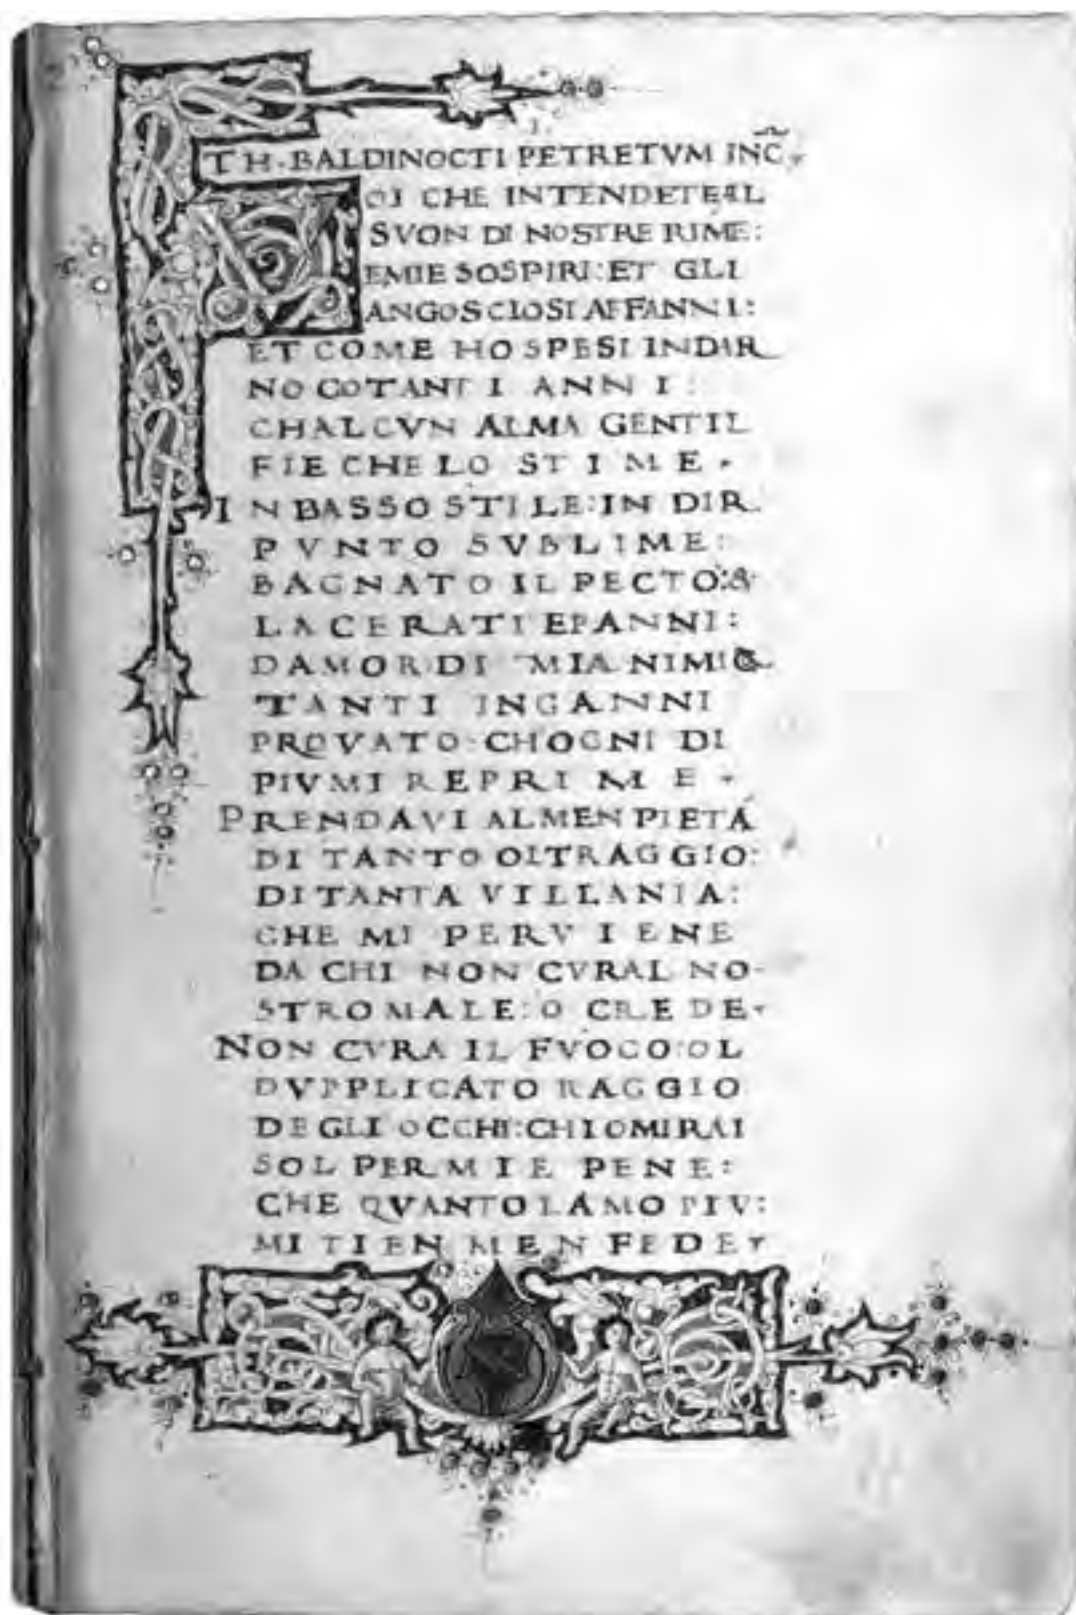 TH. BALDINOCTI PETRETVM INC̃.
VOI CHE INTENDETE EL
SVON DI NOSTRE RIME:
E MIE SOSPIRI: ET GLI
ANGOSCIOSI AFFANNI:
ET COME HO SPESI INDAR
NO COTANTI ANNI:
CHALCVN ALMA GENTIL
FIE CHE LO STIME.
IN BASSO STILE: IN DIR
PVNTO SVBLIME:
BAGNATO IL PECTO: &
LACERATI E PANNI:
DAMOR DI MIA NIMIC
TANTI INGANNI
PROVATO: CHOGNI DI
PIV MI REPRIME.
PRENDAVI ALMEN PIETÁ
DI TANTO OLTRAGGIO:
DI TANTA VILLANIA:
CHE MI PERVIENE
DA CHI NON CVRAL NO
STRO MALE: O CREDE.
NON CVRA IL FVOCO: OL
DVPPLICATO RAGGIO
DEGLI OCCHI: CHIOMIRAI
SOL PER MIE PENE:
CHE QVANTO LAMO PIV:
MI TIEN MEN FEDE.